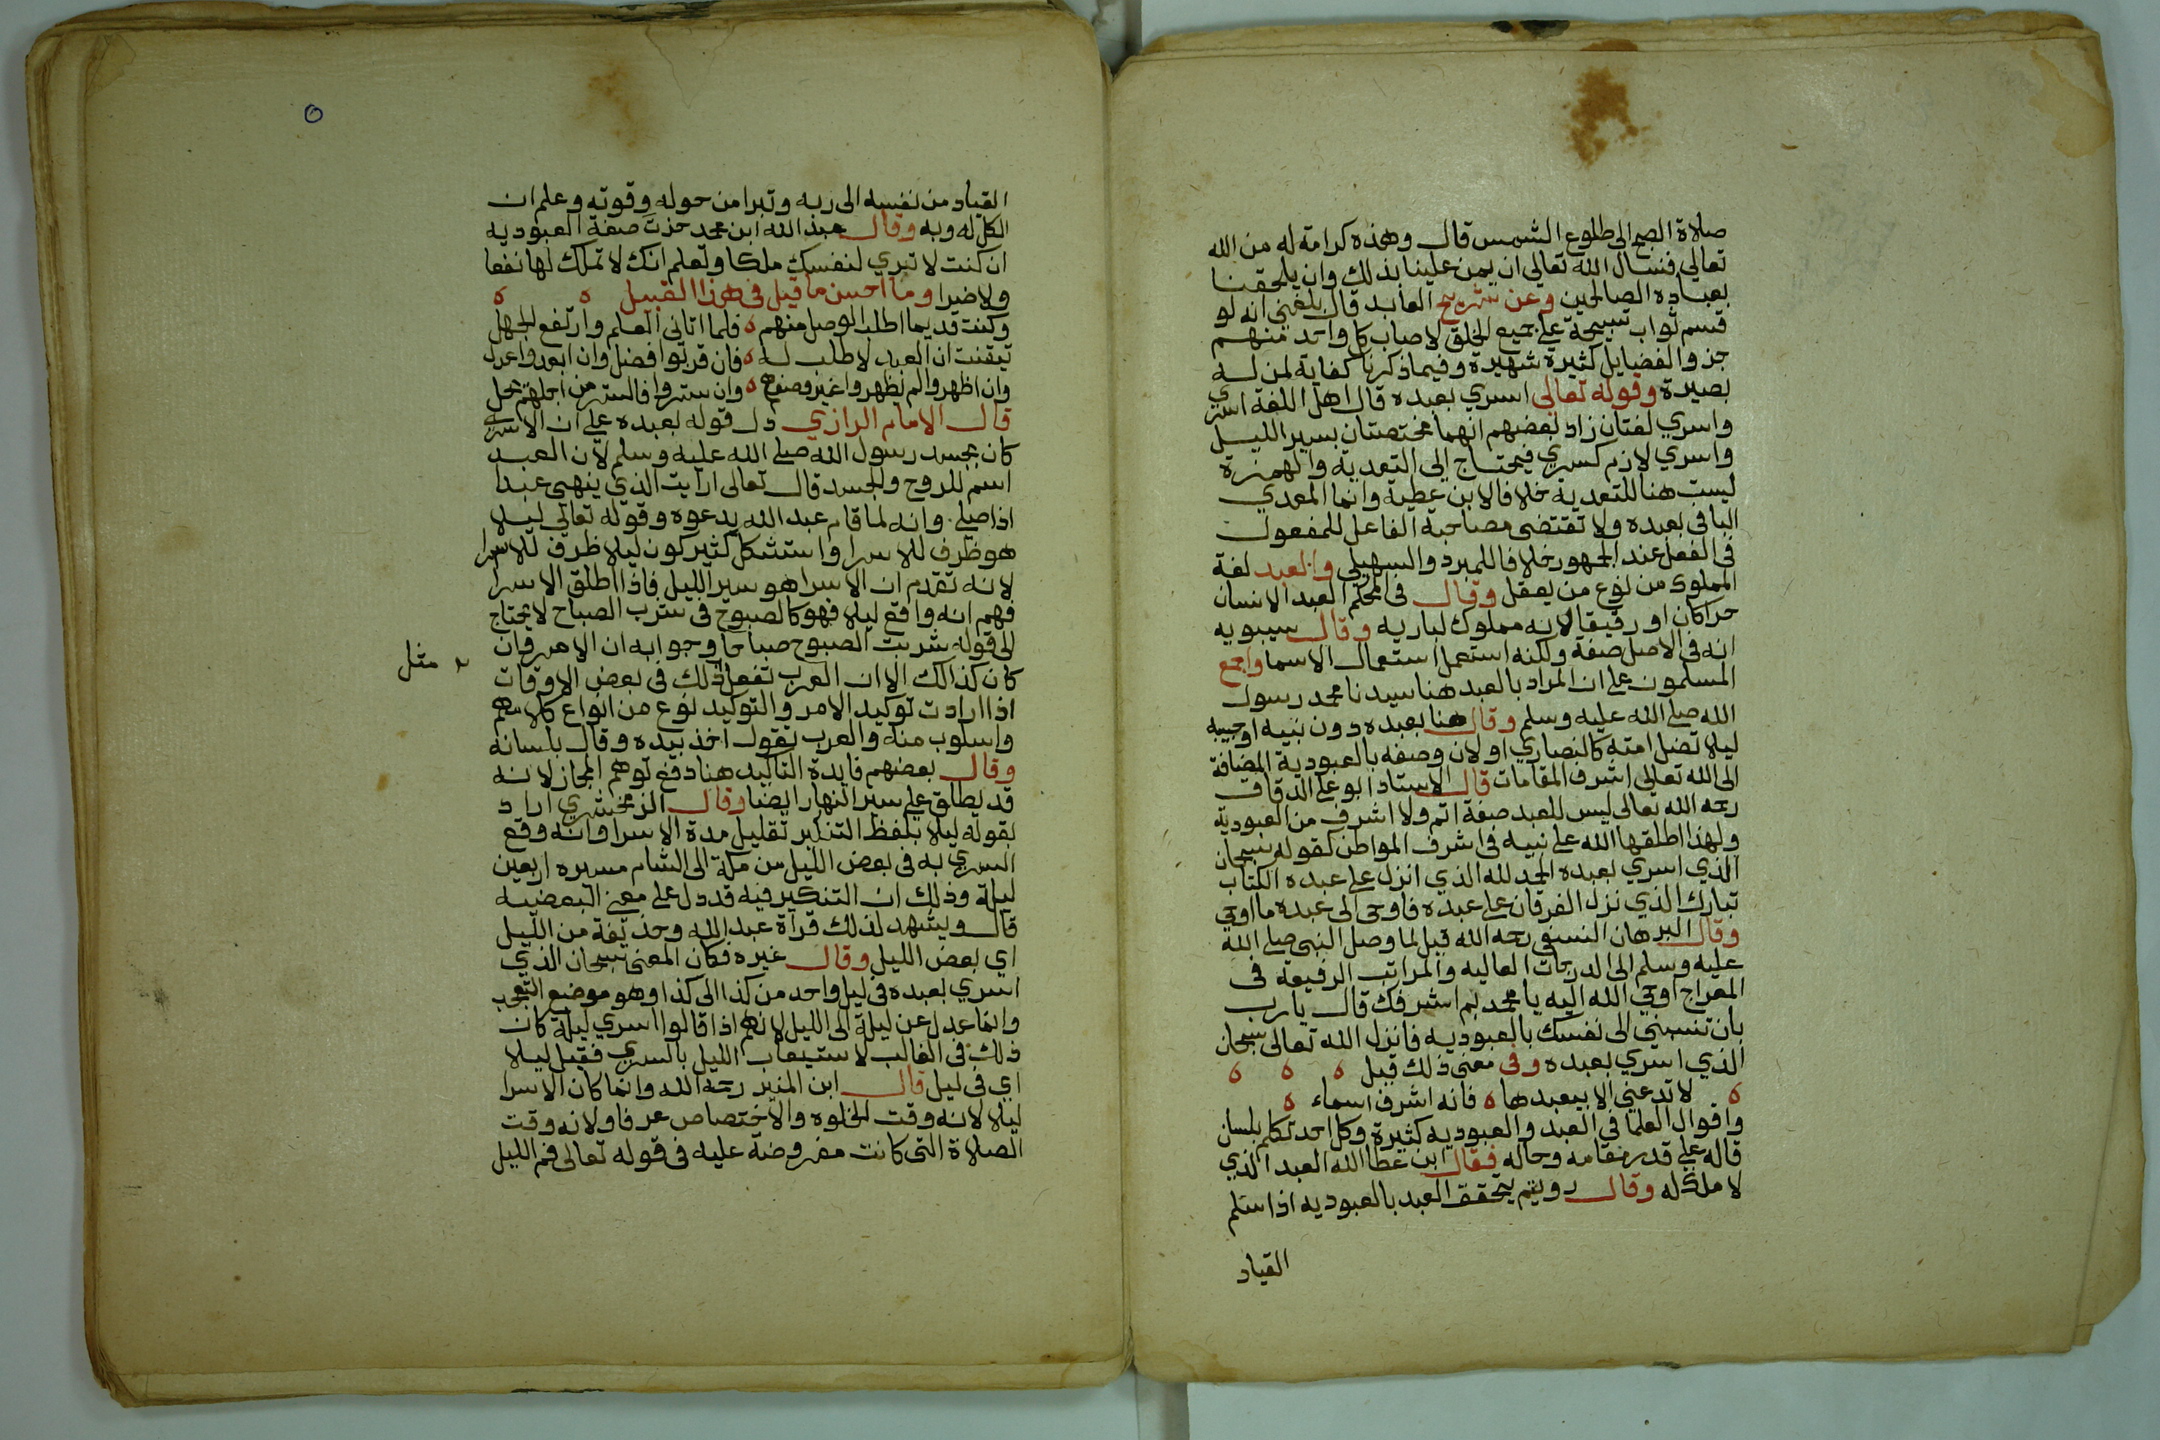 صلاة الصبح الى طلوع الشمس قال وهذه كرامة له من الله
تعالى فنسال الله تعالى ان يمن علينا بذلك وان يلحقنا
بعباده الصالحين وعن سريح العابد قال بلغني انه لو
قسم ثواب تسبيحة على جميع الخلق لاصاب كل واحد منهم
جز والفضايل كثيرة شهيرة وفيما ذكرنا كفاية لمن له
بصيرة وقوله تعالى اسري بعبده قال اهل اللغة اسري
واسري لغتان زاد بعضهم انهما مختصتان بسير الليل
واسري لازم كسري فيحتاج الى التعدية والهمزة
ليست هنا للتعدية خلافا لابن عطية وانما المعدي
البا في بعبده ولا تقتضى مصاحبة الفاعل للمفعول
في الفعل عند الجمهور خلافا للمبرد والسهيلي والعبد لغة
المملوك من نوع من يعقل وقال في المحكم العبد الانسان
حرا كان او رقيقا لانه مملوك لباريه وقال سيبويه
انه في الاصل صفة ولكنه استعمل استعمال الاسما واجمع
المسلمون على ان المراد بالعبد هنا سيدنا محمد رسول
الله صلى الله عليه وسلم وقال هنا بعبده دون نبيه او حبيبه
ليلا تضل امته كالنصاري او لان وصفه بالعبودية المضافة
الى الله تعالى اشرف المقامات قال الاستاد ابو على الدقاق
رحمه الله تعالى ليس للعبد صفة اتم ولا اشرف من العبودية
ولهذا اطلقها الله على نبيه في اشرف المواطن كقوله سبحان
الذي اسري بعبده الحمد لله الذي انزل على عبده الكتاب
تبارك الذي نزل الفرقان على عبده فاوحى الى عبده ما اوحى
وقال البرهان النسفي رحمه الله قيل لما وصل النبى صلى الله
عليه وسلم الى الدرجات العاليه والمراتب الرفيعة في
المعراج اوحى الله اليه يا محمد بم اشرفك قال يارب
بان تنسبني الى نفسك بالعبوديه فانزل الله تعالى سبحان
الذي اسري بعبده وفي معنى ذلك قيل ه ه ه
ه لا تدعني الا بيعبدها ه فانه اشرف اسماء ه
واقوال العلما في العبد والعبوديه كثيرة وكل احد تكلم بلسان
قاله على قدر مقامه وحاله فقال ابن عطا الله العبد الذي
لا ملك له وقال رويتم يتحقق العبد بالعبوديه اذا سلم
القياد
القياد من نفسه الى ربه وتبرا من حوله وقوته وعلم ان
الكل له وبه وقال عبد الله ابن محمد حزت صفة العبوديه
ان كنت لا تري لنفسك ملكا وتعلم انك لا تملك لها نفعا
ولا ضرا وما احسن ما قيل في هذا القبيل ه ه
وكنت قديما اطلب الوصل منهم ه فلما اتاني العلم وارتفع الجهل
تيقنت ان العبد لا طلب له ه فان قربوا فضل وان ابعدوا عدل
وان اظهروا لم يظهروا غير وصفهم ه وان ستروا فالستر من اجلهم يحل
قال الامام الرازي دل قوله بعبده على ان الاسري
كان بجسد رسول الله صلى الله عليه وسلم لان العبد
اسم للروح والجسد قال تعالى ارايت الذي ينهى عبدا
اذا صلى. وانه لما قام عبد الله يدعوه وقوله تعالى ليلا
هو ظرف للاسرا واستشكل كثير كون ليلا ظرف للاسرا
لانه تقدم ان الاسرا هو سير الليل فاذا اطلق الاسرا
فهم انه واقع ليلا فهو كالصبوح في شرب الصباح لا يحتاج
الى قوله شربت الصبوح صباحا وجوابه ان الامر وان
كان كذالك الا ان العرب تفعل ذلك في بعض الاوقات
مثل
اذا ارادت توكيد الامر والتوكيد نوع من انواع كلامهم
واسلوب منه والعرب تقول اخذ بيده وقال بلسانه
وقال بعضهم فايدة التاكيد هنا دفع توهم المجاز لانه
قد يطلق على سير النهار ايضا وقال الزمخشري اراد
بقوله ليلا بلفظ التنكير تقليل مدة الاسرا وانه وقع
السري به في بعض الليل من مكة الى الشام مسيره اربعين
ليلة وذلك ان التنكير فيه قد دل على معنى البعضيه
قال ويشهد لذلك قرآة عبد الله وحذيفة من الليل
اي بعض الليل وقال غيره فكان المعنى سبحان الذي
اسري بعبده في ليل واحد من كذا الى كذا وهو موضع التعجب
وانما عدل عن ليلة الى الليل لانهم اذا قالوا اسري ليلة كان
ذلك في الغالب لاستيعاب الليل بالسري فقيل ليلا
اي في ليل قال ابن المنير رحمه الله وانما كان الاسرا
ليلا لانه وقت الخلوه والاختصاص عرفا ولانه وقت
الصلاة التى كانت مفروضة عليه في قوله تعالى قم الليل